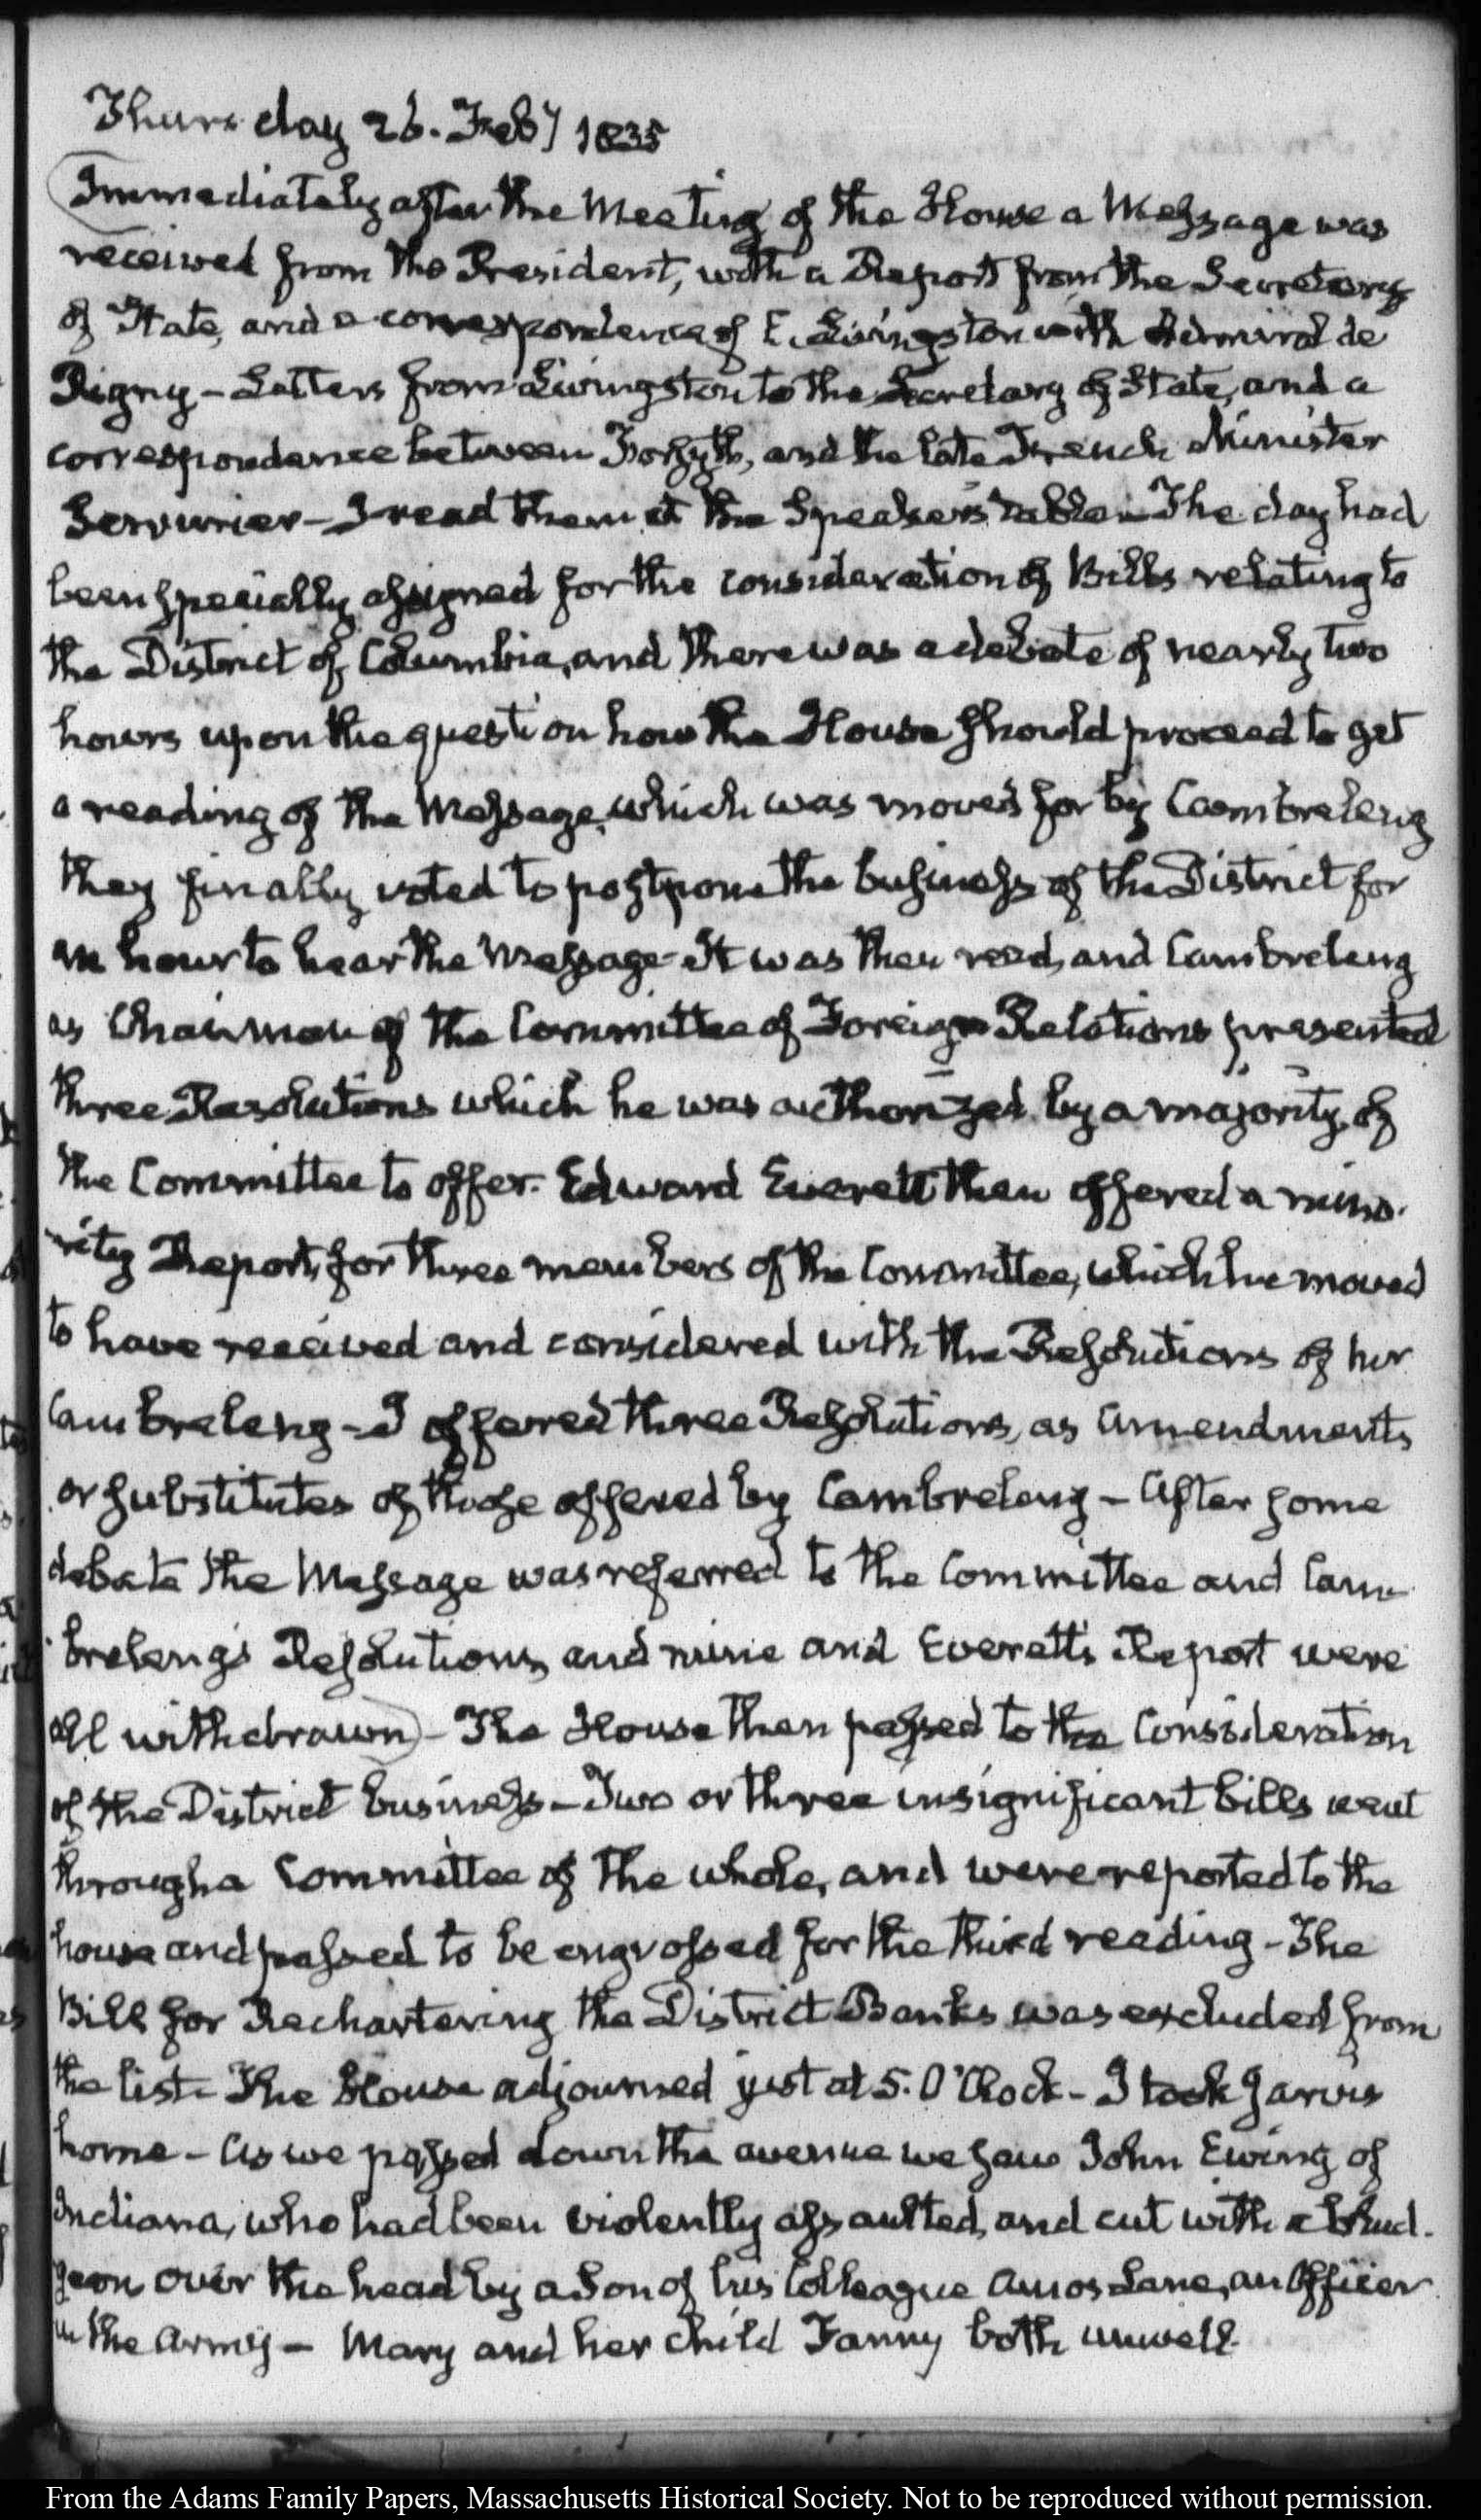 Thursday 26. Feby 1835
Immediately after the Meeting of the House a Message was
received from the President, with a Report from the Secretary
of State, and a correspondence of E. Livingston with Admiral de
Rigny – Letters from Livingston to the Secretary of State, and a
correspondence between Forsyth, and the late French Minister
Serrurier – I read them at the Speaker's table – The day had
been specially assigned for the consideration of Bills relating to
the District of Columbia, and there was a debate of nearly two
hours upon the question how the House should proceed to get
a reading of the Message, which was moved for by Cambreleng
they finally voted to postpone the business of the District for
an hour to hear the Message – It was then read, and Cambreleng
as Chairman of the Committee of Foreign Relations presented
three Resolutions which he was authorized by a majority of
the Committee to offer. Edward Everett then offered a mino-
rity Report, for three members of the Committee, which he moved
to have received and considered with the Resolutions of
Cambreleng – I offered three Resolutions, as amendments
or substitutes of those offered by Cambreleng – After some
debate the Message was referred to the Committee and Cam-
breleng's Resolutions, and mine and Everett's Report were
all withdrawn) – The House then passed to the Consideration
of the District business – Two or three insignificant bills went
through a Committee of the whole, and were reported to the
house and passed to be engrossed for the third reading – The
Bill for Rechartering the District Banks was excluded from
the list – The House adjourned just at 5. O'Clock – I took Jarvis
home – As we passed down the avenue we saw John Ewing of
Indiana, who had been violently assaulted, and cut with a blud-
geon over the head by a Son of his Colleague Amos Lane, an Officer
in the Army – Mary and her child Fanny both unwell.
From the Adams Family Papers, Massachusetts Historical Society. Not to be reproduced without permission.